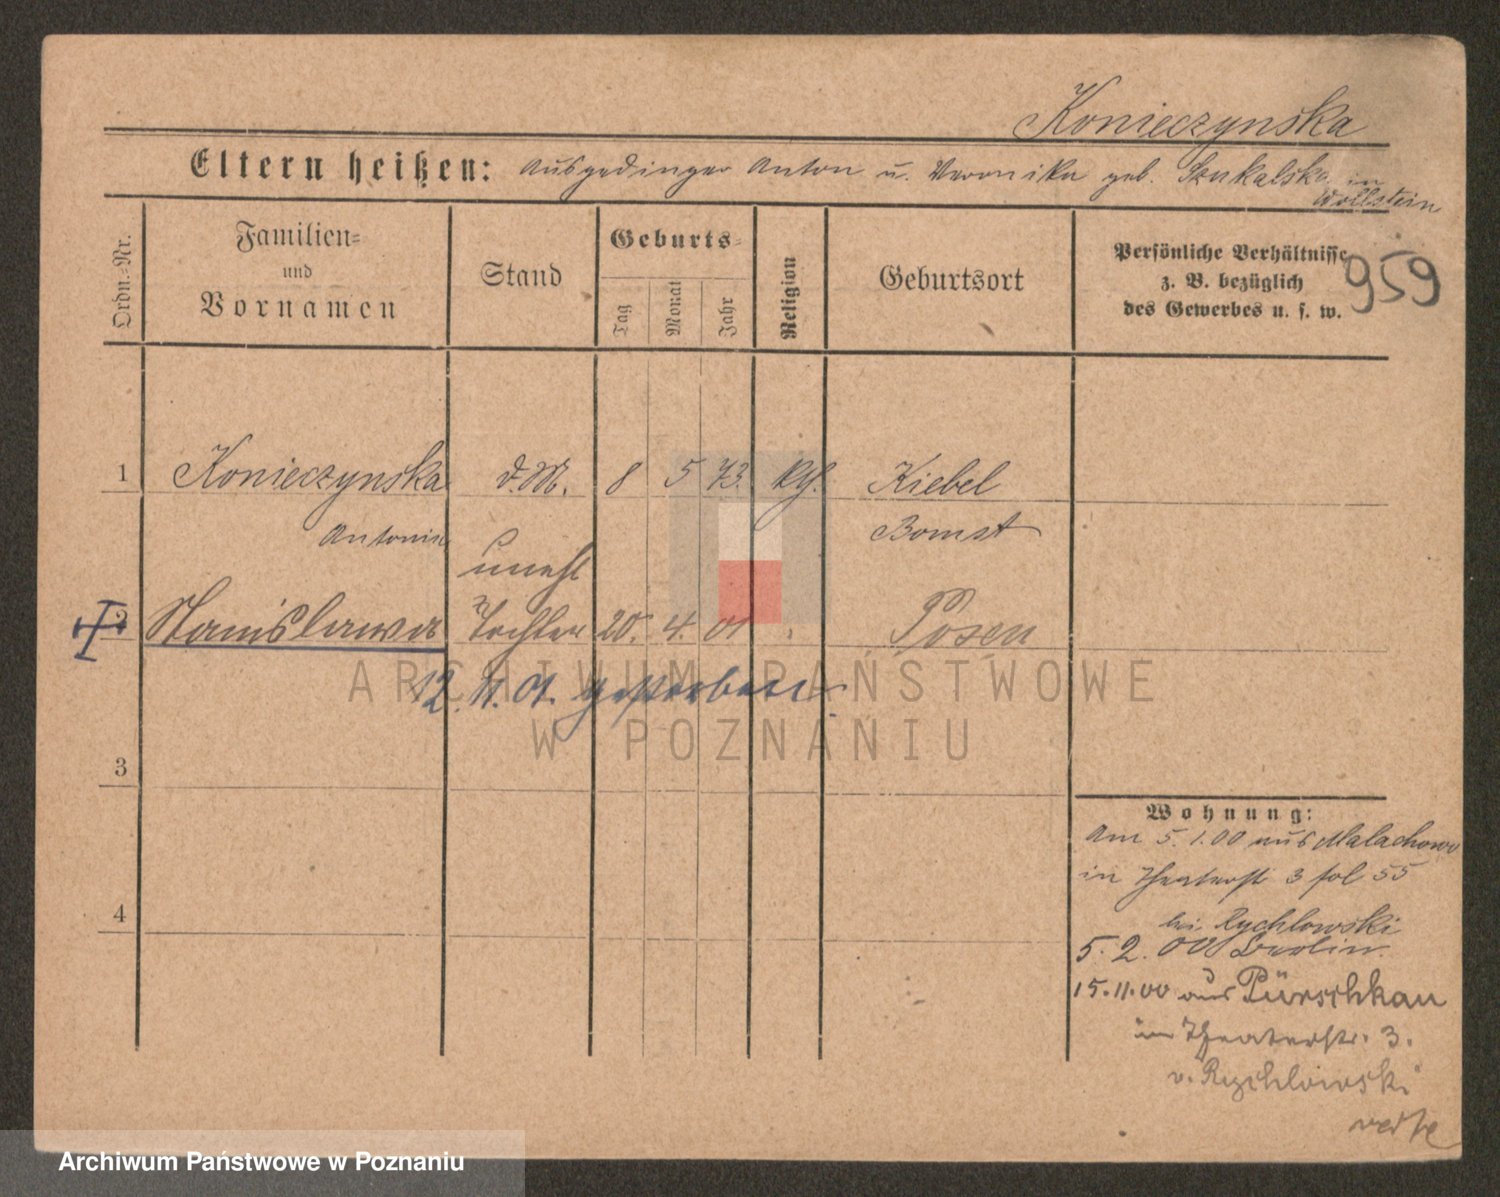 Konieczynska
Eltern heißen: Ausgedinger Anton u. Veronika geb. Szukalska in
Wollstein
Ordn.=Nr.
Familien=
und
Vornamen
Stand
Geburts=
Tag
Monat
Jahr
Religion
Geburtsort
Persönliche Verhältnisse
z. B. bezüglich
des Gewerbes u. s. w.
959
1 Konieczynska d.M. 8 5 73. kth. Kiebel
Antonie Bomst
unehl
2 Stanislawa Tochter 20. 4. 01 Posen
12. 11. 01. gestorben.
3
4
Wohnung:
Am 5.1.00 aus Malachowo
in Theaterst 3 fol 55
bei Rychlowski
5.2.00 Berlin.
15.11.00 aus Pürschkau
in Theaterstr. 3.
v. Rychlowski
ARCHIWUM PAŃSTWOWE
W POZNANIU
Archiwum Państwowe w Poznaniu